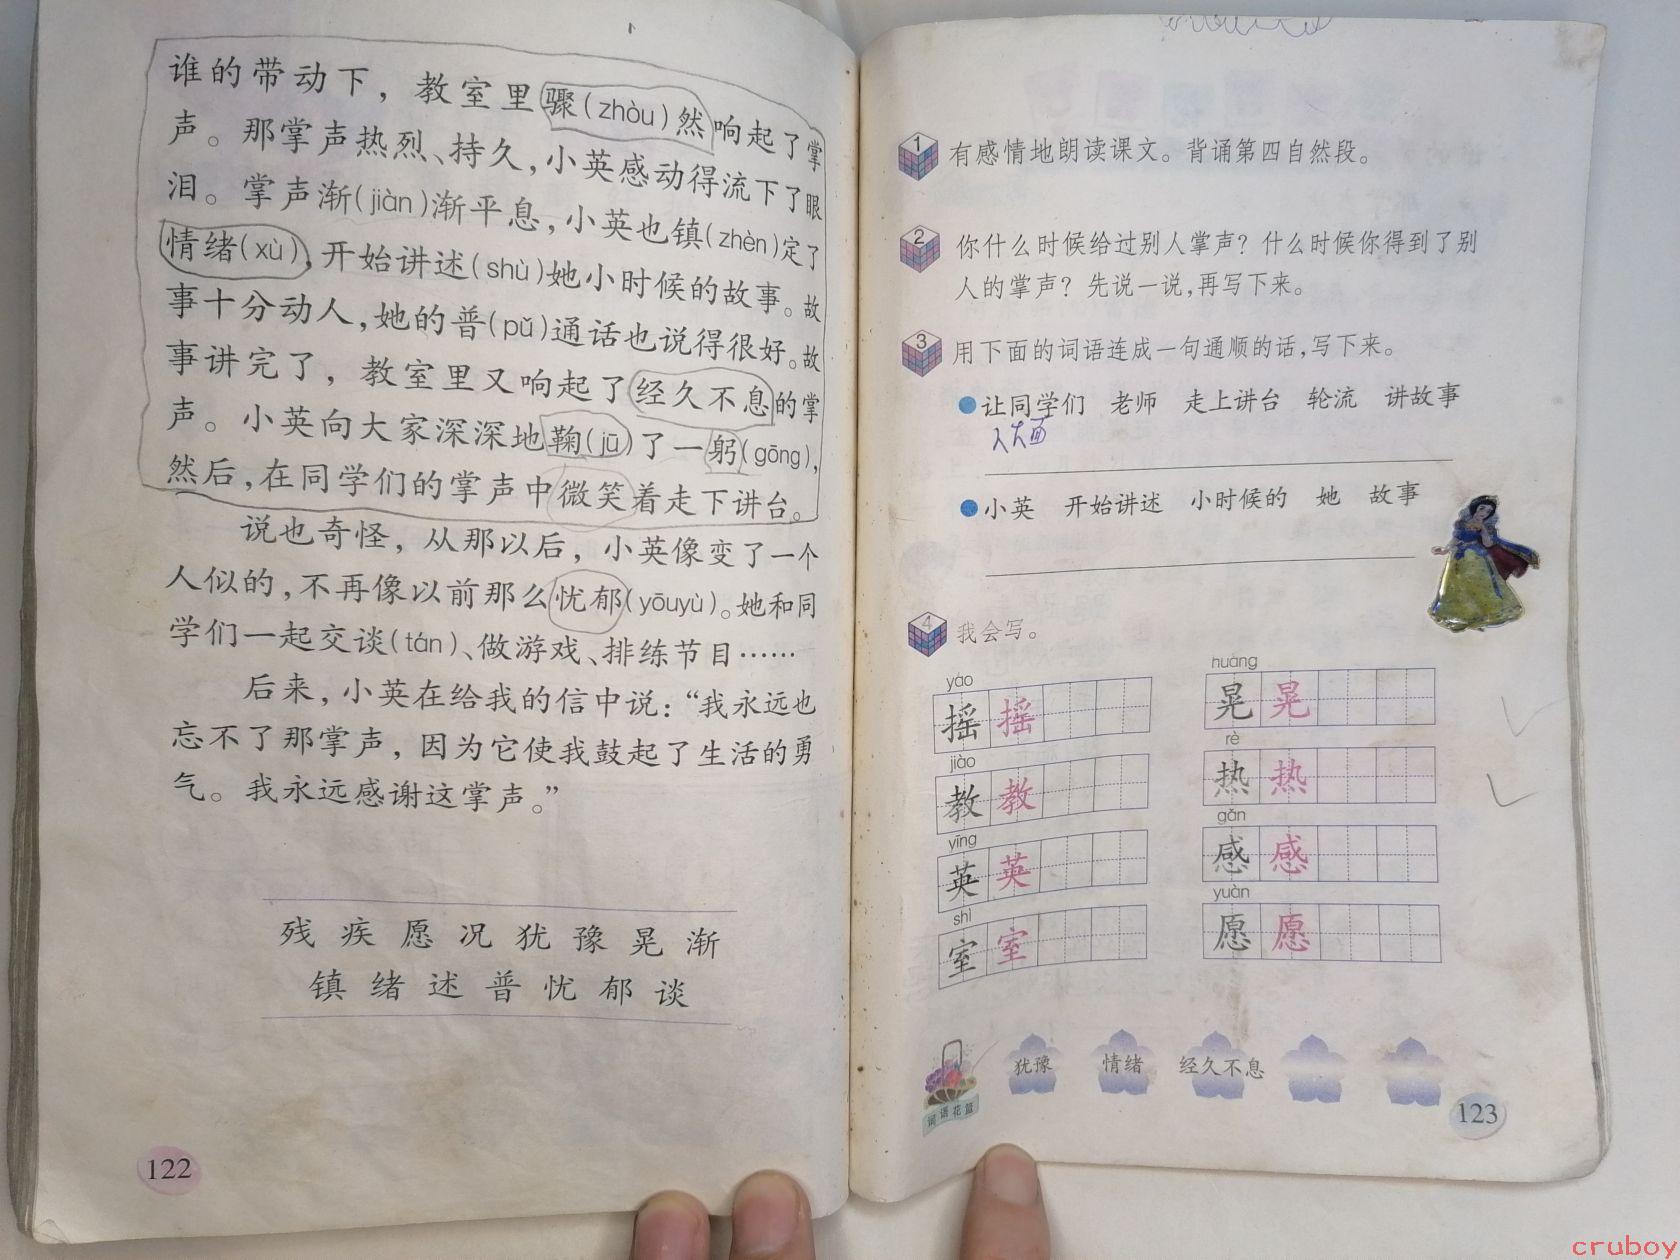 谁的带动下，教室里骤(zhòu)然响起了掌
声。那掌声热烈、持久，小英感动得流下了眼
泪。掌声渐(jiàn)渐平息，小英也镇(zhèn)定了
情绪(xù)，开始讲述(shù)她小时候的故事。故
事十分动人，她的普(pǔ)通话也说得很好。故
事讲完了，教室里又响起了经久不息的掌
声。小英向大家深深地鞠(jū)了一躬(gōng)，
然后，在同学们的掌声中微笑着走下讲台。
说也奇怪，从那以后，小英像变了一个
人似的，不再像以前那么忧郁(yōuyù)。她和同
学们一起交谈(tán)、做游戏、排练节目……
后来，小英在给我的信中说：“我永远也
忘不了那掌声，因为它使我鼓起了生活的勇
气。我永远感谢这掌声。”
残 疾 愿 况 犹 豫 晃 渐
镇 绪 述 普 忧 郁 谈
122
1 有感情地朗读课文。背诵第四自然段。
2 你什么时候给过别人掌声？什么时候你得到了别
人的掌声？先说一说，再写下来。
3 用下面的词语连成一句通顺的话，写下来。
●让同学们 老师 走上讲台 轮流 讲故事
●小英 开始讲述 小时候的 她 故事
4 我会写。
yáo huàng
摇 摇 晃 晃
jiào rè
教 教 热 热
yīng gǎn
英 英 感 感
shì yuàn
室 室 愿 愿
词语花篮 犹豫 情绪 经久不息
123
cruboy